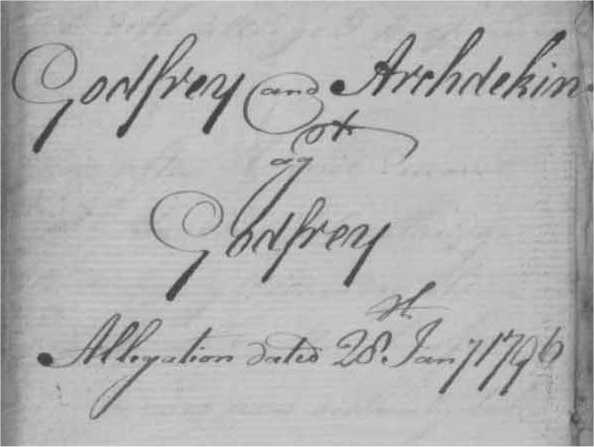 Godfrey and Archdekin
agst
Godfrey
Allegation dated 28th Jany 1796